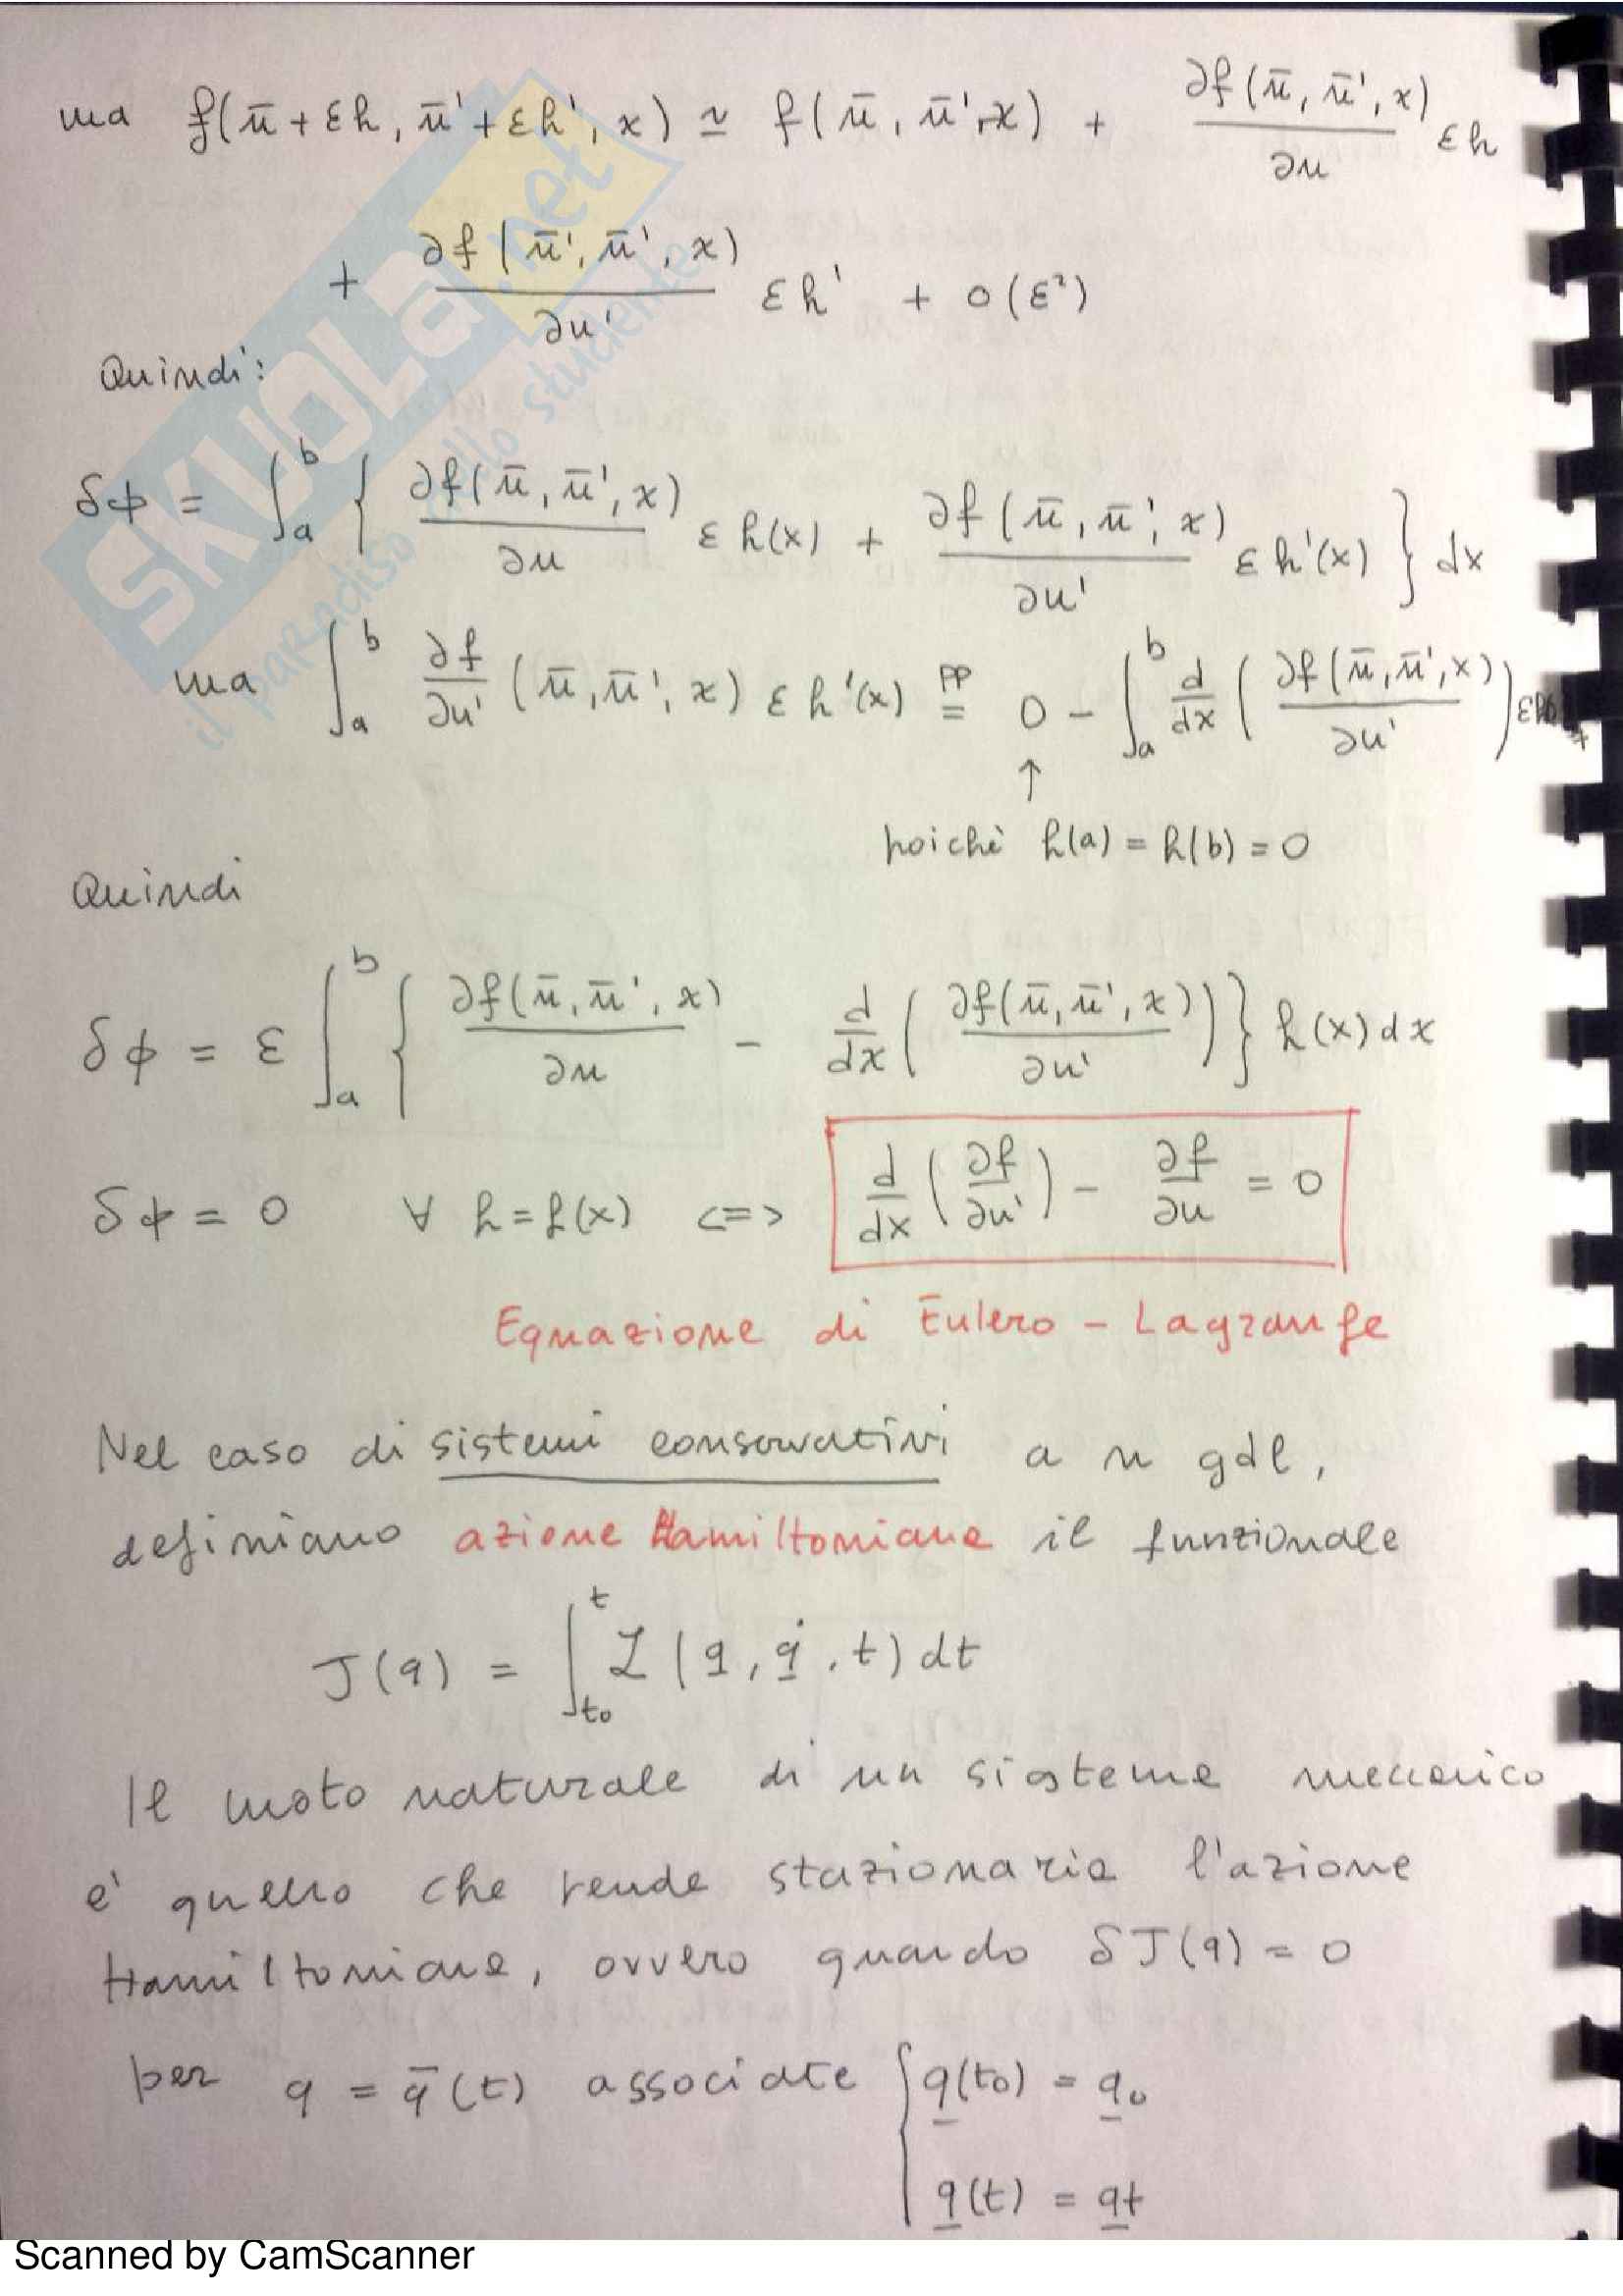 ma f(ū+εh, ū'+εh', x) ≃ f(ū, ū', x) + ∂f(ū, ū', x)/∂u εh
+ ∂f(ū', ū', x)/∂u' εh' + o(ε²)
Quindi:
δϕ = ∫_a^b { ∂f(ū, ū', x)/∂u εh(x) + ∂f(ū, ū', x)/∂u' εh'(x) } dx
ma ∫_a^b ∂f/∂u' (ū, ū', x) εh'(x) =^{PP} 0 - ∫_a^b d/dx ( ∂f(ū, ū', x)/∂u' )
↑
poichè h(a) = h(b) = 0
Quindi
δϕ = ε ∫_a^b { ∂f(ū, ū', x)/∂u - d/dx ( ∂f(ū, ū', x)/∂u' ) } h(x) dx
δϕ = 0 ∀ h = h(x) <=> d/dx ( ∂f/∂u' ) - ∂f/∂u = 0
Equazione di Eulero - Lagrange
Nel caso di sistemi conservativi a n gdl,
definiamo azione Hamiltoniana il funzionale
J(q) = ∫_{t0}^t L(q, q̇, t) dt
Il moto naturale di un sistema meccanico
e' quello che rende stazionaria l'azione
Hamiltoniana, ovvero quando δJ(q) = 0
per q = q̄(t) associate { q(t0) = q0
q(t) = qt
SKUOLA.net
il paradiso dello studente
Scanned by CamScanner